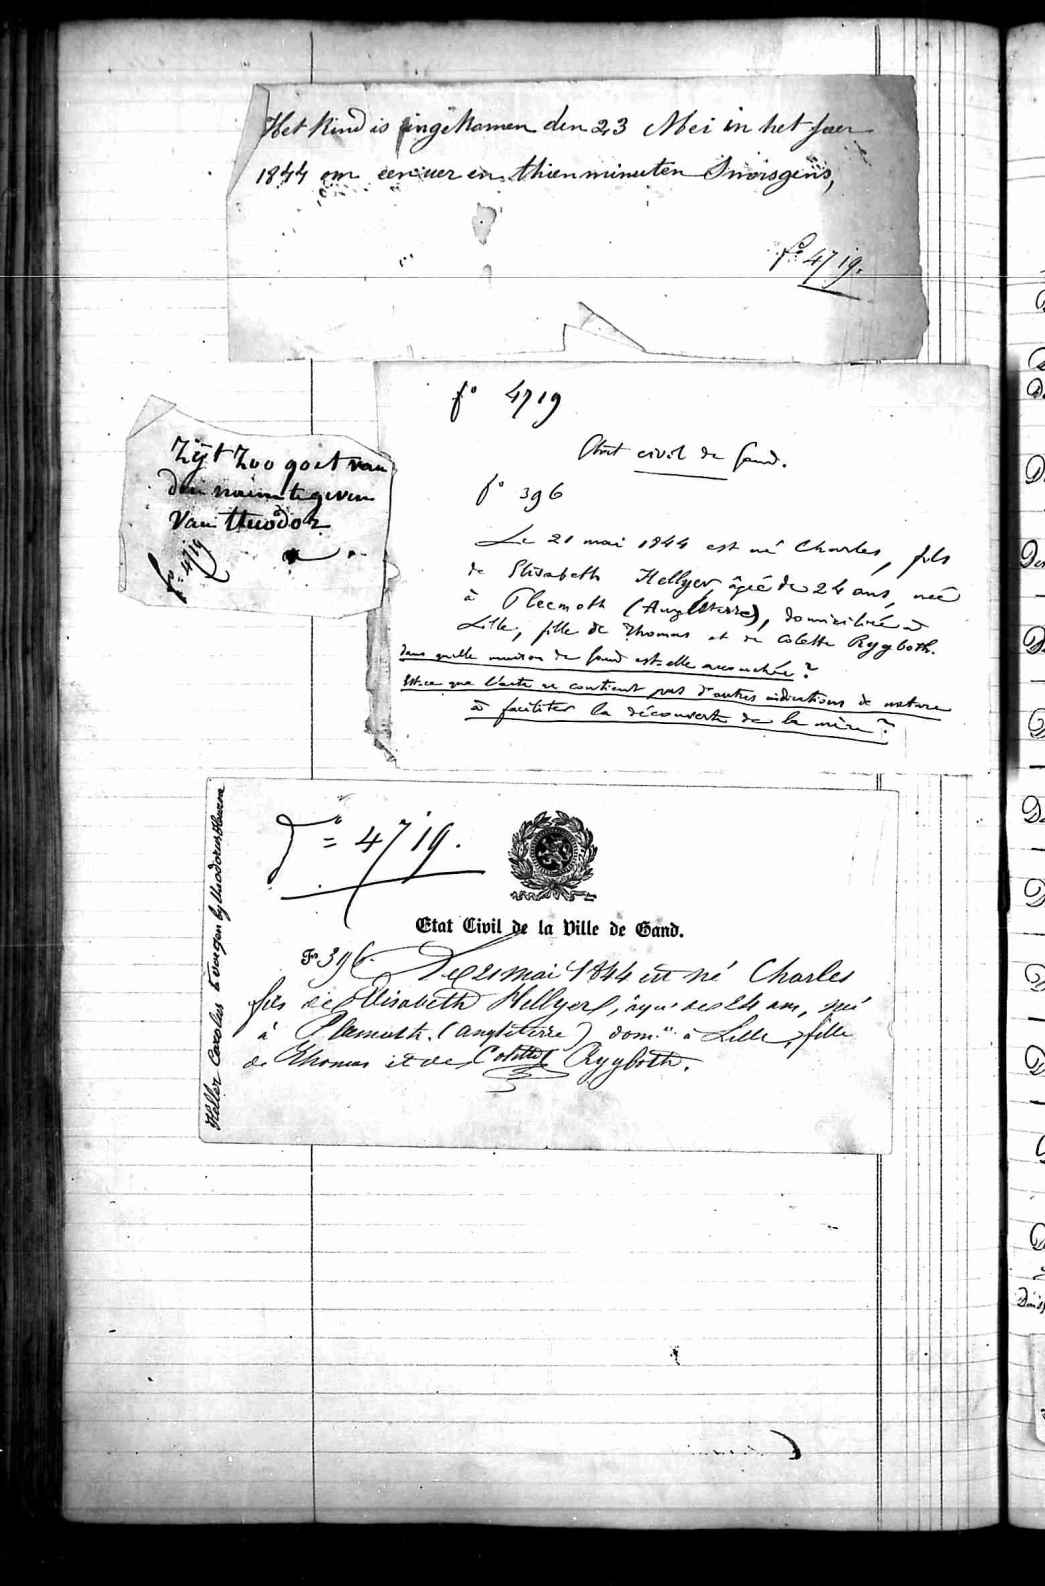 Het Kind is ingekomen den 23 Mei in het jaer
1844 om een uer en thien minuten Smorgens,
fº 4719.
fº 4719
Etat civil de Gand.
fº 396
Le 21 mai 1844 est né Charles, fils
de Elisabeth Hellyer, âgée de 24 ans, née
à Pleemoth (Angleterre), domiciliée à
Lille, fille de Thomas et de Colette Rygboth.
Dans quelle maison de Gand est-elle accouchée?
Est-ce que l'acte ne contient pas d'autres indications de nature
à faciliter la découverte de la mère?
Zijt Zoo goet van
den naim te geven
Van theodor
fº 4719
fº 4719.
Etat Civil de la Ville de Gand.
Fº 396.
Le 21 mai 1844 est né Charles
fils de Elisabeth Hellyer, âgée de 24 ans, née
à (Angleterre) dom.ée à Lille, fille
de Thomas et de Colette Rygboth.
Heller Carolus